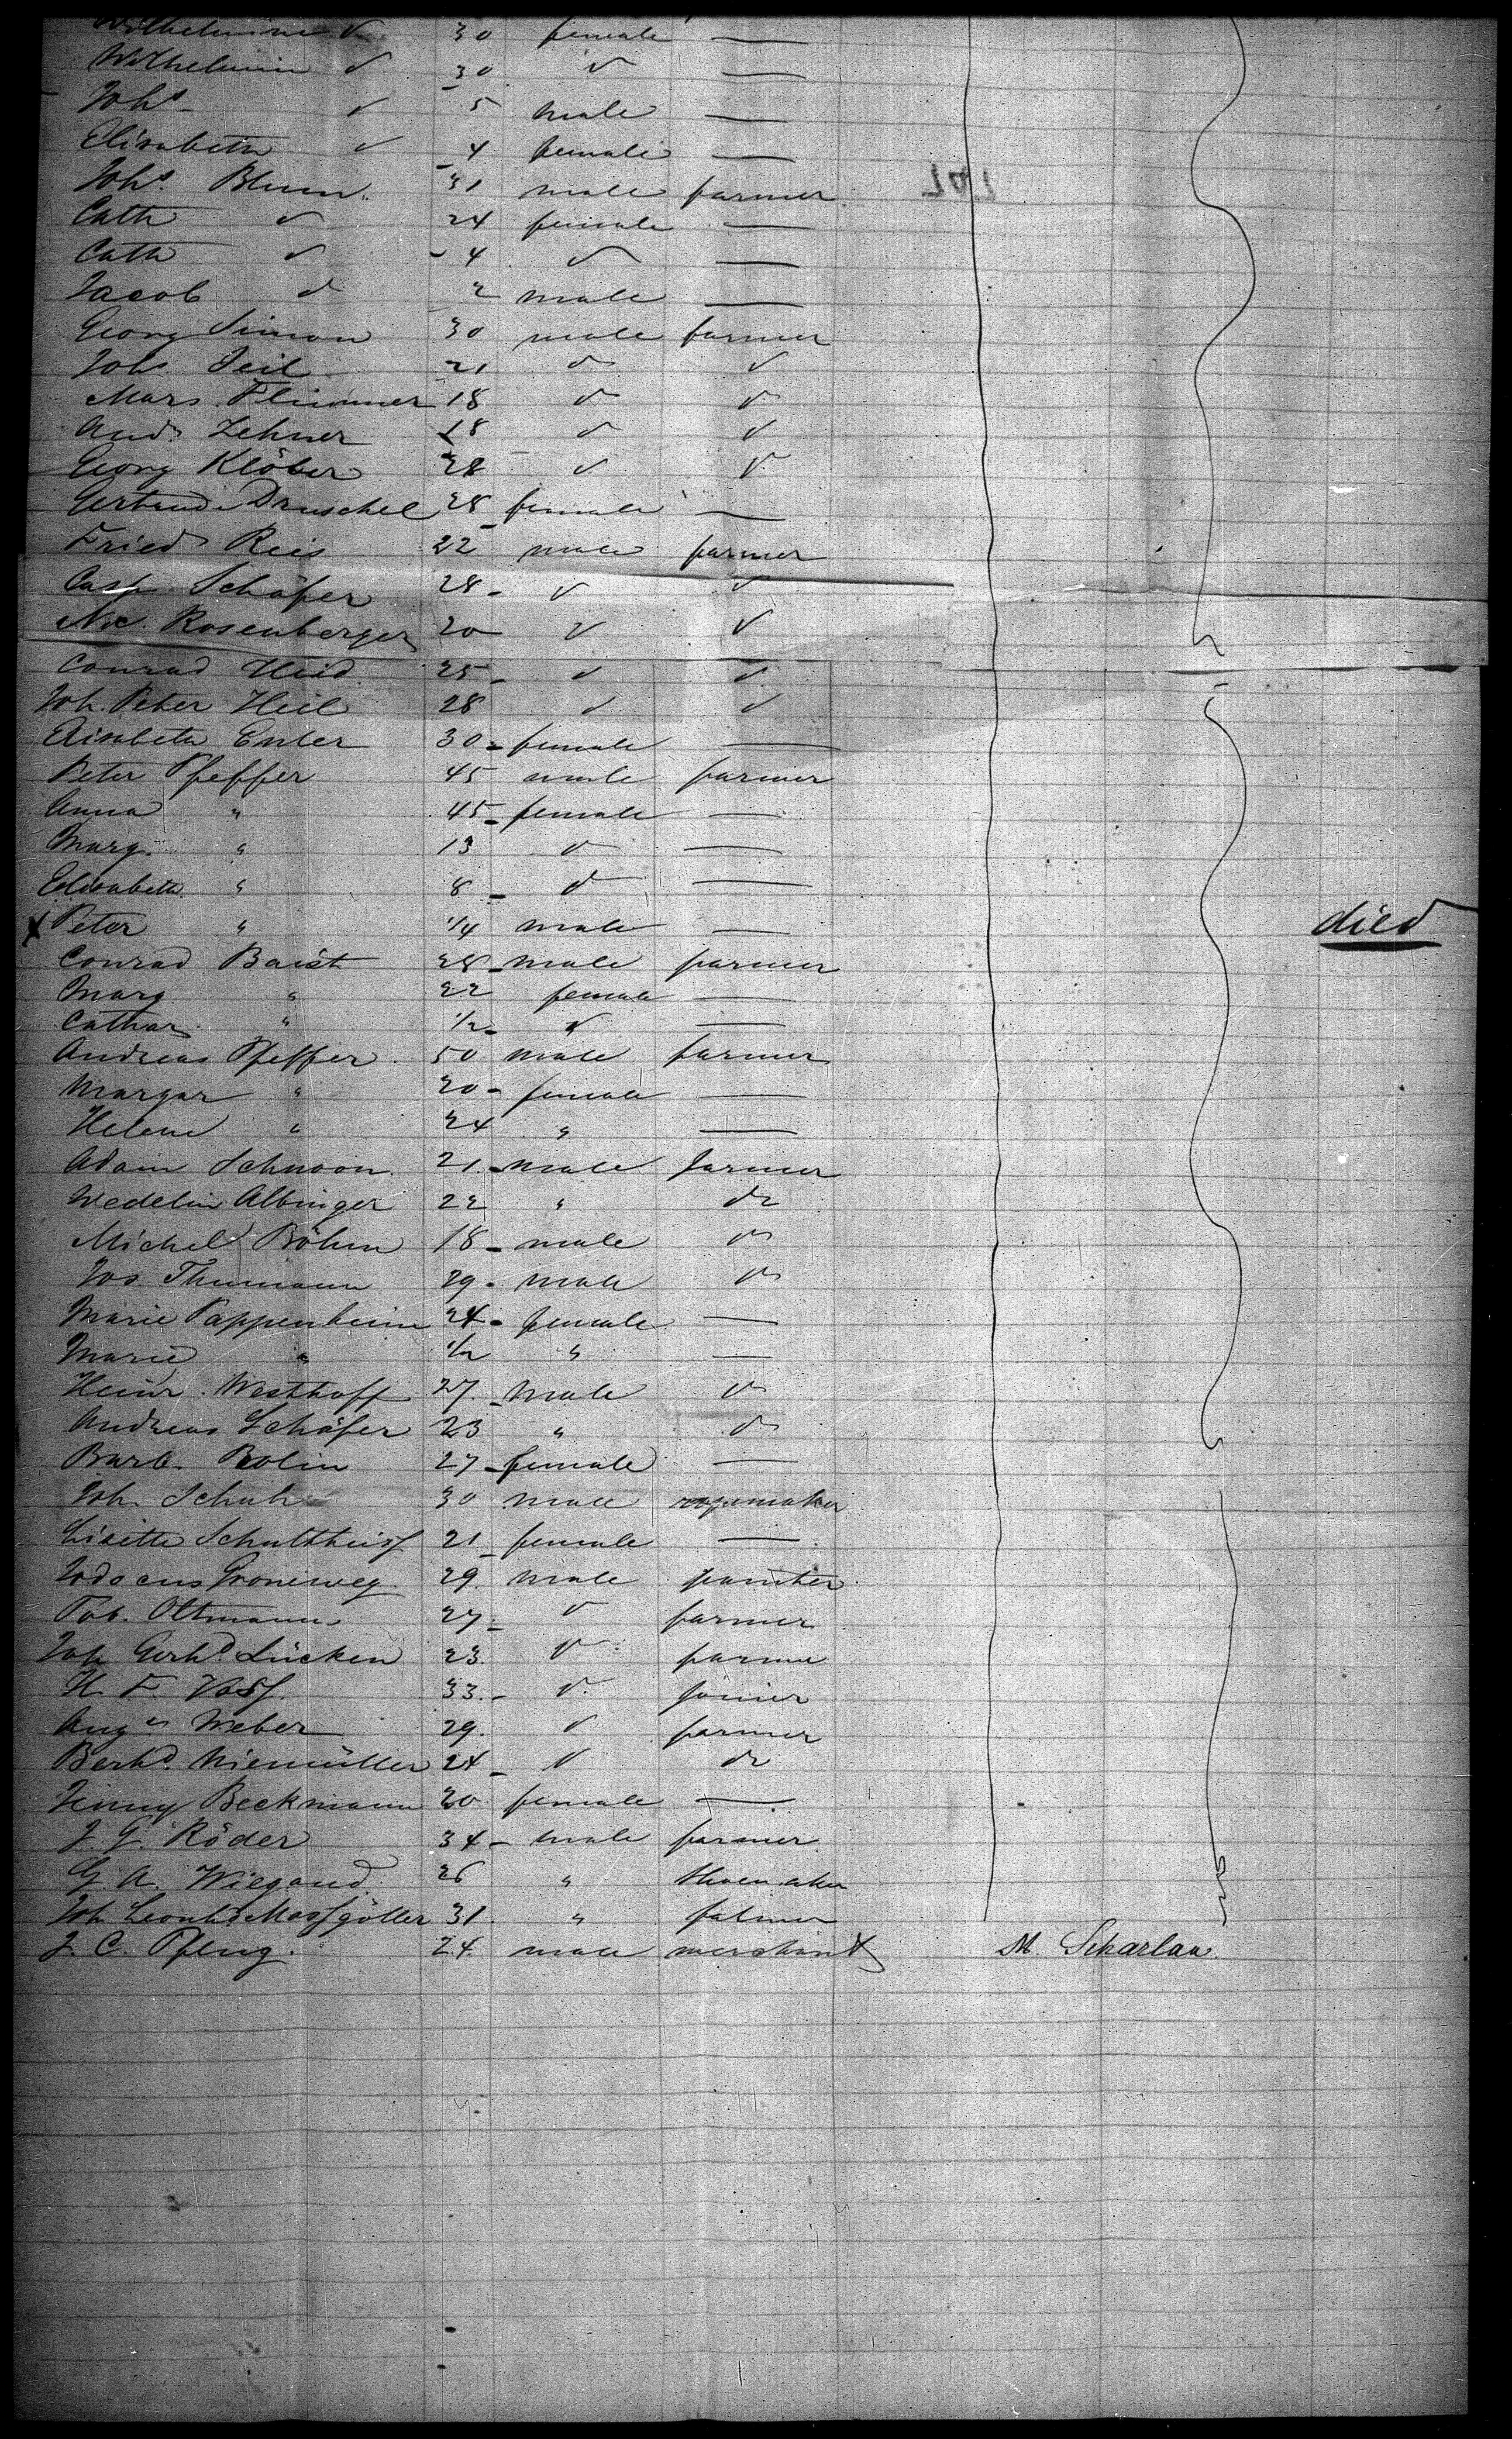 Wilhelmine do 30 female —
Wilhelmin do 30 do —
Johs do 5 male —
Elisabeth do 4 female —
Johs. Blum 31 male farmer
Cath do 24 female —
Cath do 4 do —
Jacob do 2 male —
Georg Simon 30 male farmer
Johs. Seil 21 do do
Mars. Flimmer 18 do do
Andr. Zehner 18 do do
Georg Klöber 28 do do
Gertrude Druschel 28 female —
Fried Reis 22 male farmer
Casp. Schäfer 28 do do
Nic. Rosenberger 20 do do
Conrad Heid 25 do do
Joh. Peter Heil 28 do do
Elisabeth Euler 30 female —
Peter Pfeffer 45 male farmer
Anna " 45 female —
Marg. " 13 do —
Elisabeth " 8 do —
x Peter " 1/4 male — died
Conrad Baist 28 male farmer
Marg " 22 female —
Cathar. " 1/2 do —
Andreas Pfeffer 50 male farmer
Margar " 20 female —
Helene " 24 " —
Adam Schnoon 21 male farmer
Wedelin Albinger 22 " do
Michel Böhm 18 male do
Jos. Thumann 29 male do
Marie Pappenheim 24 female —
Marie " 1/2 " —
Heinr. Westhoff 27 male do
Andreas Schäfer 23 " do
Barb. Bolin 27 female —
Joh. Schuh 30 male ropemaker
Lisette Schultheiss 21 female —
Jodocus Groneweg 29 male painter
Tob. Oltmann 27 do farmer
Joh Gerhd Lücken 23 do farmer
H. F. Voss 33 do joiner
Augs Weber 29 do farmer
Berhd. Niemüller 24 do do
Jenny Beckmann 20 female —
J. G. Röder 34 male farmer
G. A. Wiegand 26 " Shoemaker
Joh Leonhd Massgöller 31 " farmer
J. C. Pflug. 24 male merchant M. Scharlau.